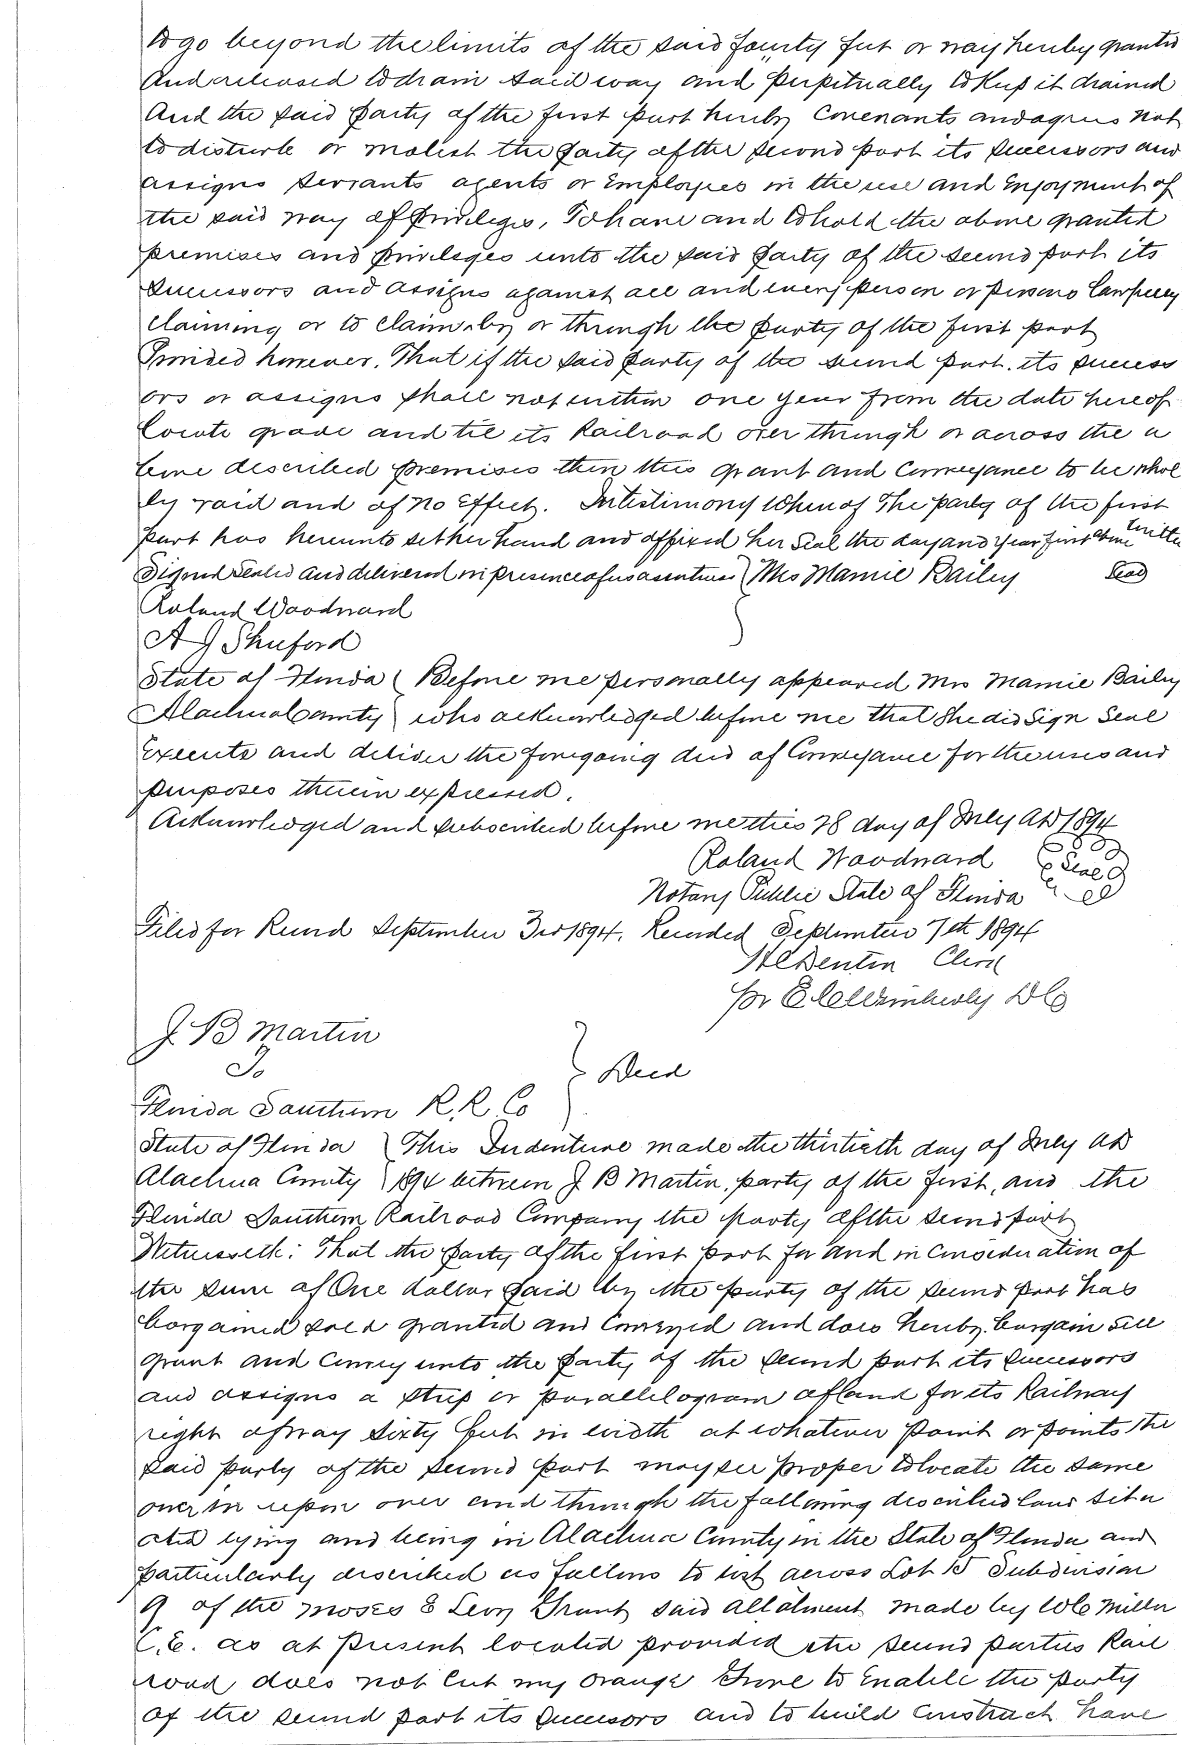 to go beyond the limits of the said fourty feet or way hereby granted
And released to drain said way and perpetually to Keep it drained
And the said party of the first part hereby Covenants and agrees not
to disturb or molest the party of the second part its successors and
assigns servants agents or Employees in the use and Enjoyment of
the said way of privileges, To have and to hold the above granted
premises and privileges unto the said party of the second part its
Successors and assigns against all and every person or persons lawfully
claiming or to claim by or through the party of the first part
Provided however, That if the said party of the second part its success
ors or assigns shall not within one year from the date hereof
locate grade and tie its Railroad over through or across the a
bove described premises then this grant and Conveyance to be whol
ly void and of no Effect. In testimony Whereof The party of the first
part has hereunto set her hand and affixed her Seal the day and Year first above written
Signed Sealed and delivered in presence of us as witness Mrs Mamie Bailey Seal
Roland Woodward
A J Shuford
State of Florida Before me personally appeared Mrs Mamie Bailey
Alachua County who acknowledged before me that She did Sign Seal
Execute and deliver the foregoing deed of Conveyance for the uses and
purposes therein expressed.
Acknowledged and subscribed before me this 28 day of July AD 1894
Roland Woodward Seal
Notary Public State of Florida
Filed for Record September 3rd 1894. Recorded September 7th 1894
H C Denton Clerk
pr E C Wimberly D C
J B Martin
To
Deed
Florida Southern R.R. Co
State of Florida This Indenture made the thirtieth day of July AD
Alachua County 1894 between J B Martin, party of the first, and the
Florida Southern Railroad Company the party of the second part
Witnesseth: That the party of the first part for and in Consideration of
the sum of One dollar paid by the party of the second part has
bargained sold granted and Conveyed and does hereby bargain sell
grant and Convey unto the party of the second part its successors
and assigns a strip or parallelogram of land for its Railway
right of way Sixty feet in width at whatever point or points the
said party of the second part may see proper to locate the same
over in upon over and through the following described land situ
ated lying and being in Alachua County in the State of Florida and
particularly described as follows to wit across Lot 15 Subdivision
9 of the Moses E Levy Grant said allotment made by W C Miller
C.E. as at present located provided the second parties Rail
road does not Cut my orange Grove to Enable the party
of the second part its Successors and to build Construct have